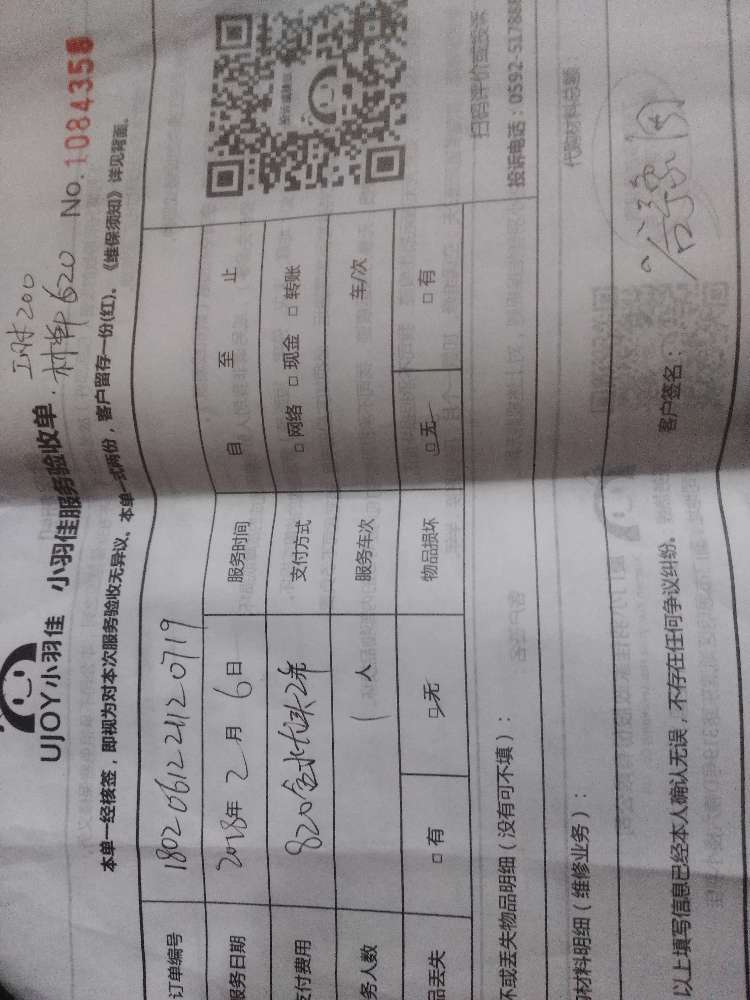 工时200
UJOY小羽佳 小羽佳服务验收单 材料620 No.1084358
本单一经核签，即视为对本次服务验收无异议、本单一式两份，客户留存一份(红)。《维保须知》详见背面。
订单编号 18020612241120719
服务日期 2018年2月6日 服务时间 自 至 止
支付费用 820 支付方式 □网络 □现金 □转账
务人数 1人 服务车次 车/次
品丢失 □有 □无 物品损坏 □无 □有
坏或丢失物品明细（没有可不填）：
扫码评价或投诉
投诉电话：0592-51788
材料明细（维修业务）：
代购材料总额
以上填写信息已经本人确认无误，不存在任何争议纠纷。 客户签名：